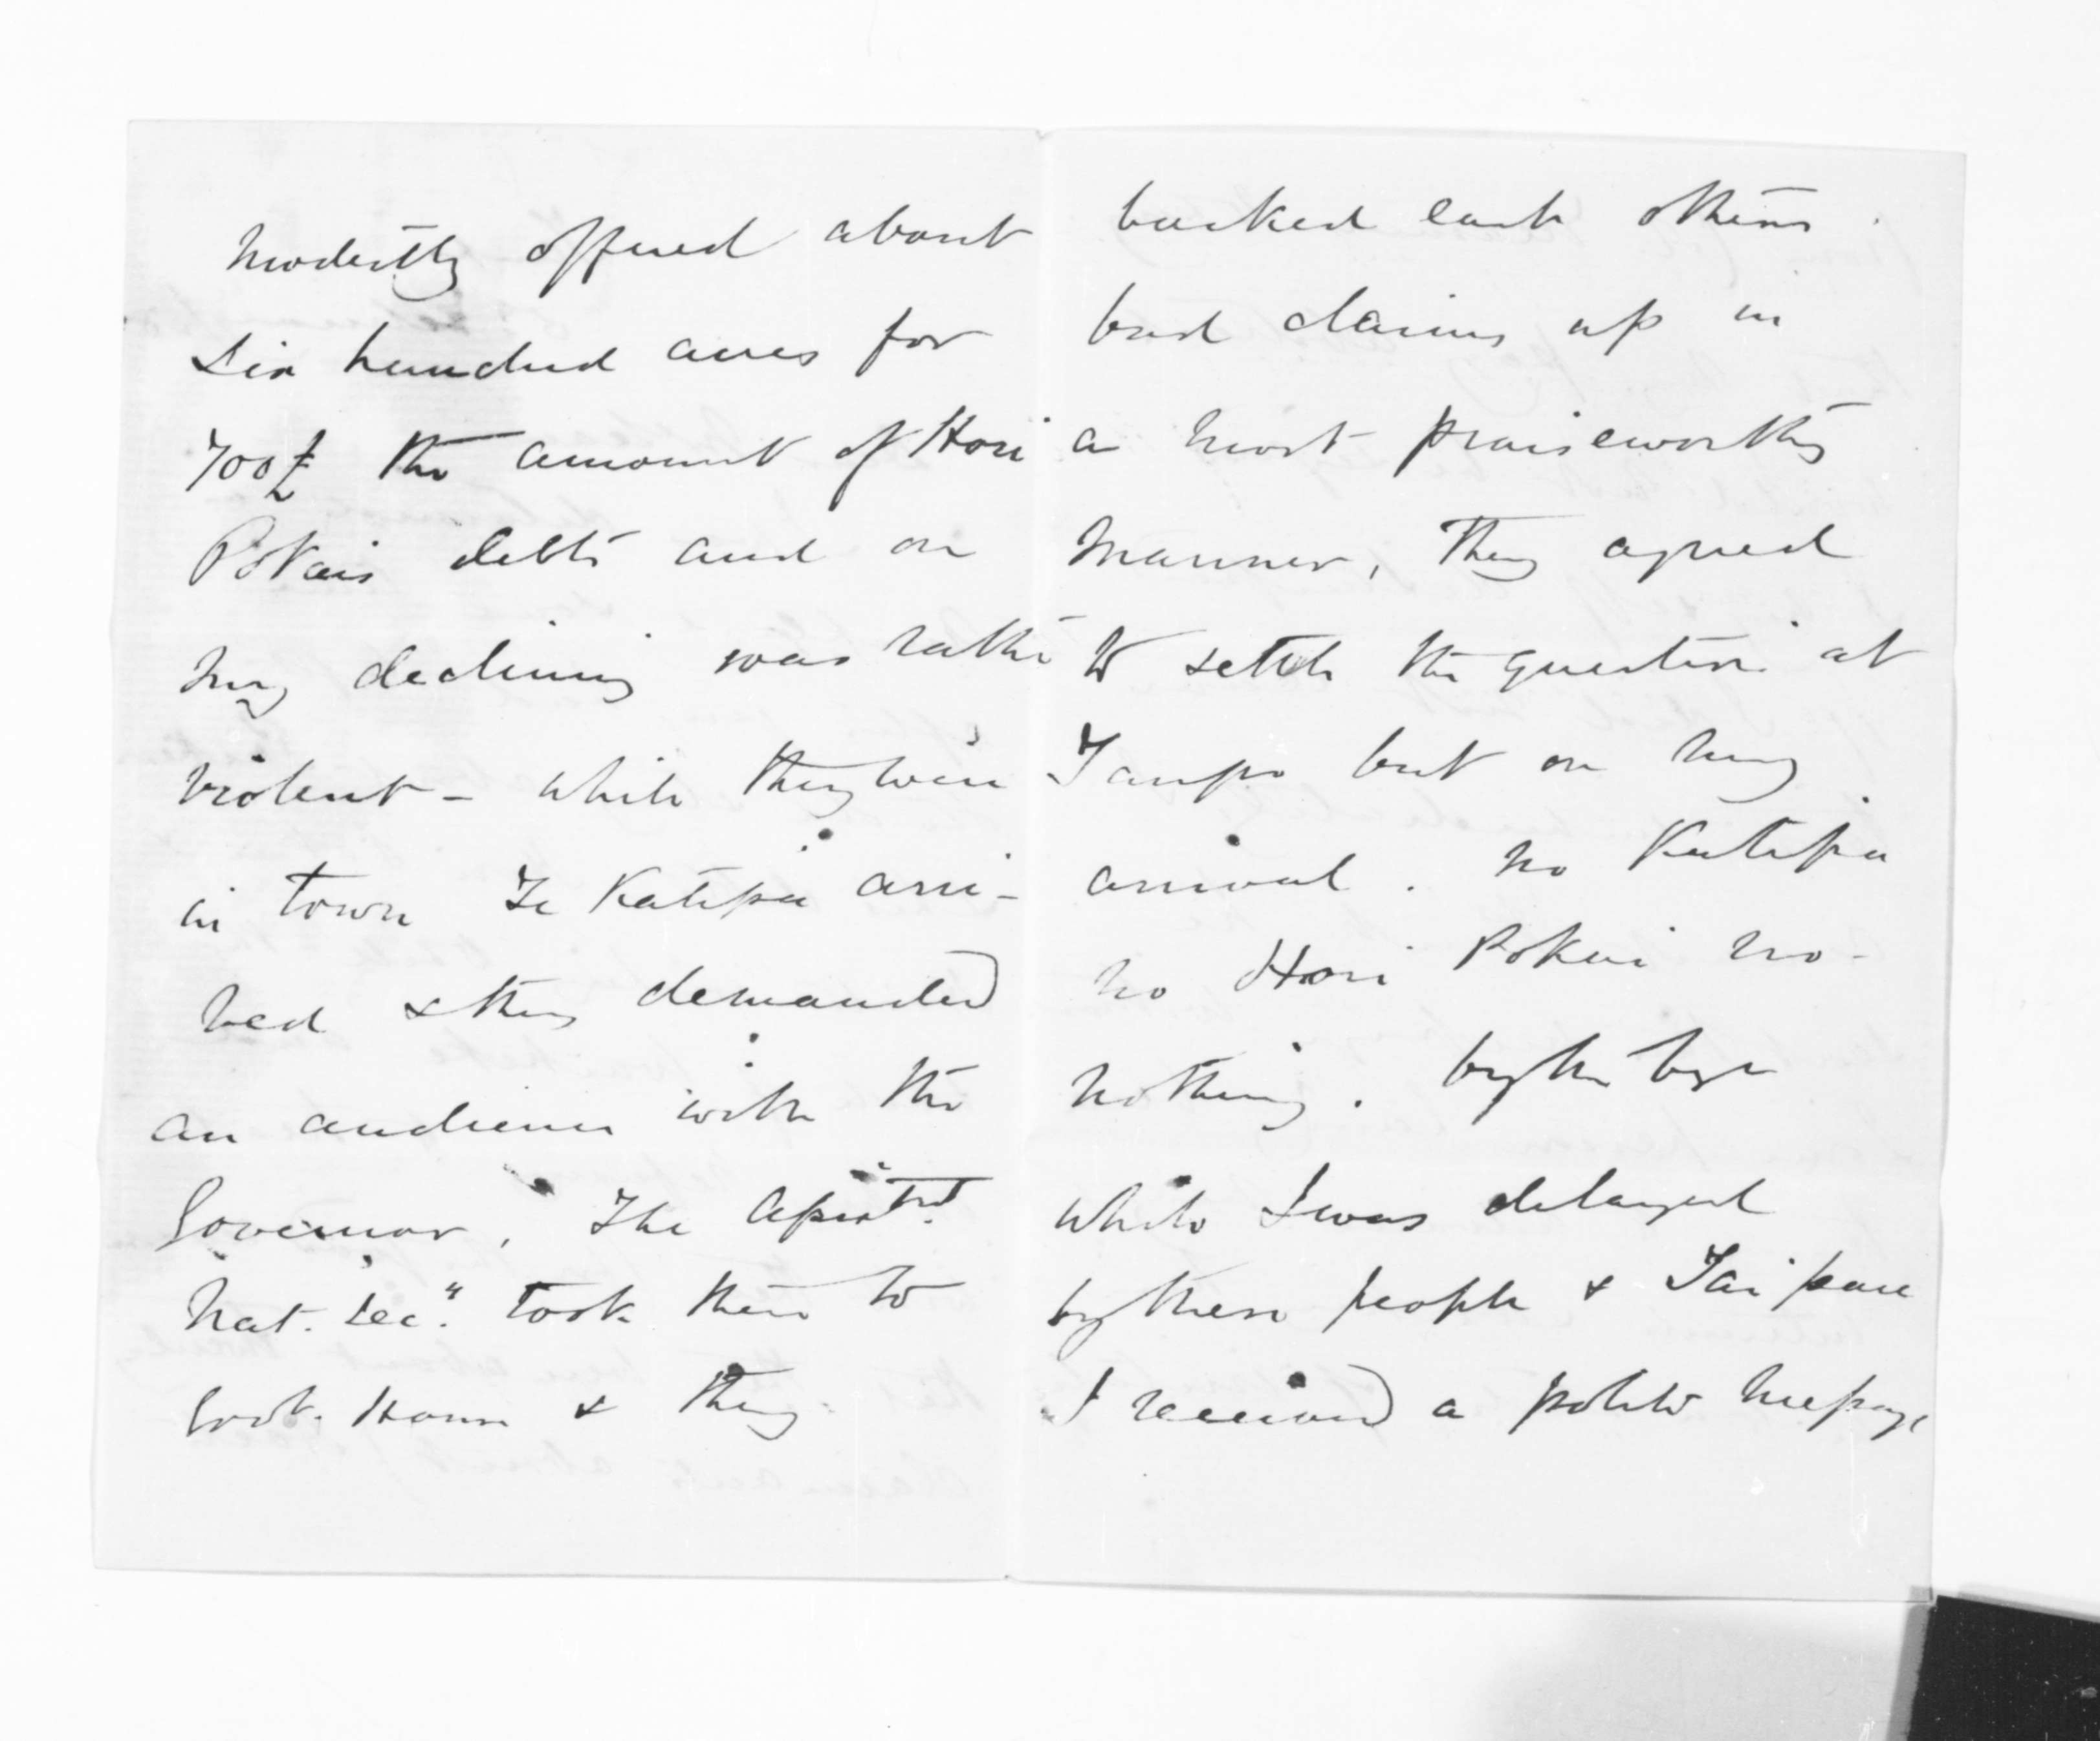 modestly offered about
six hundred acres for
700£ the amount of Hori
Pokais debts and on
my declining was rather
violent - while they were
in town Te Katipa arri-
ved & they demanded
an audience with the
Governor, The Assistnt.
Nat. Sec." took them to
Govt. House & they
backed each others
bad claims up in
a most praiseworthy
manner, They agreed
to settle the question at
Taupo but on my
arrival. no Katipa
no Hori Pokai no-
nothing. by the bye
while I was delayed
by these people & Taipari
I received a polite message